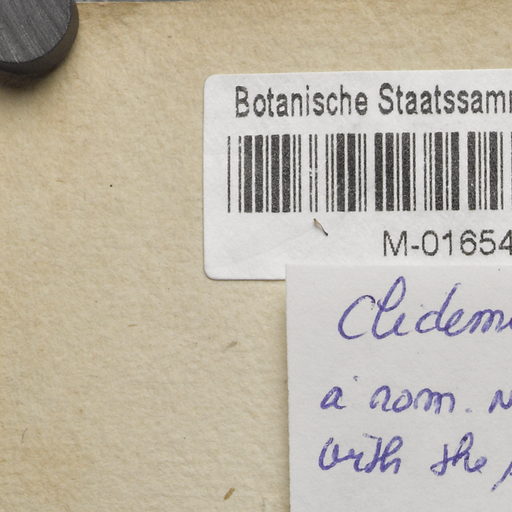 Botanische Staatssam
M-01654
Clidem
a nom. n
with the